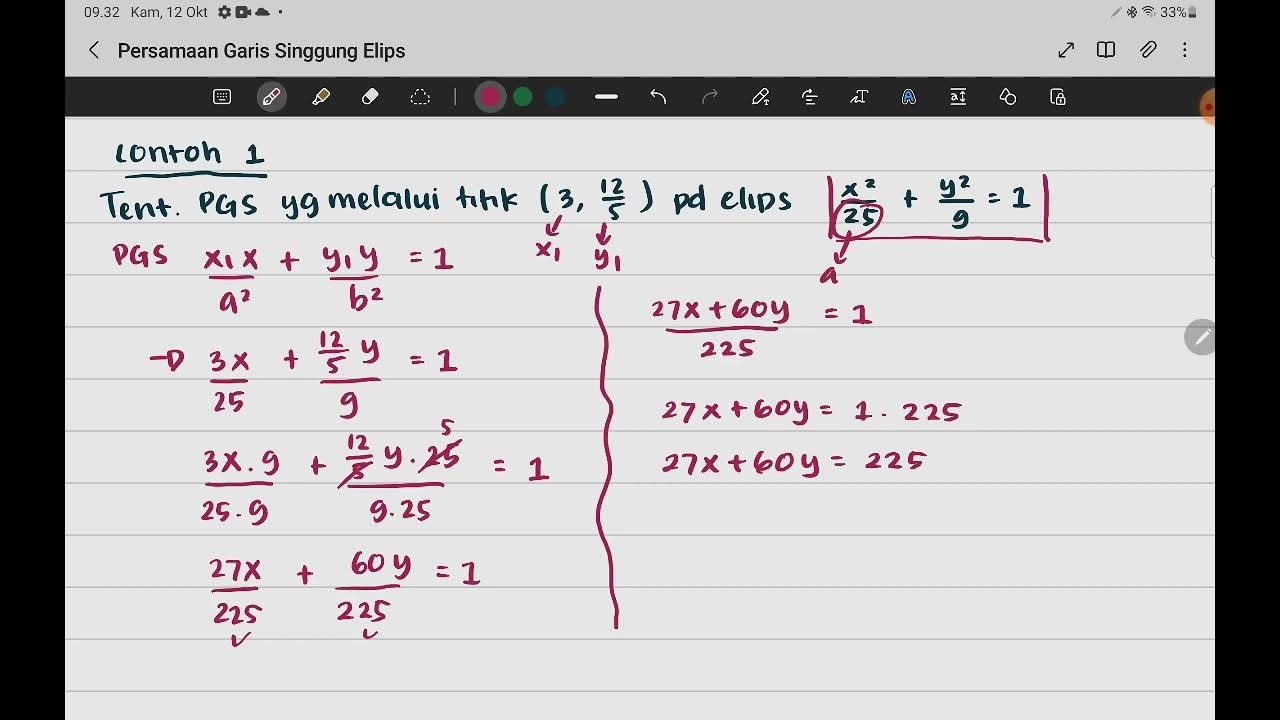 09.32 Kam, 12 Okt
33%
Persamaan Garis Singgung Elips
Contoh 1
Tent. PGS yg melalui titik (3, 12/5) pd elips x²/25 + y²/9 = 1
x₁ y₁ a
PGS x₁x/a² + y₁y/b² = 1
→ 3x/25 + 12/5 y/9 = 1
3x.9/25.9 + 12/5 y.25/9.25 = 1
5
27x/225 + 60y/225 = 1
27x+60y/225 = 1
27x+60y = 1.225
27x+60y = 225